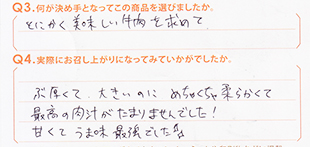 Q3.何が決め手となってこの商品を選びましたか。
とにかく美味しい牛肉を求めて
Q4.実際にお召し上がりになってみていかがでしたか。
ぶ厚くて、大きいのに めちゃくちゃ柔らかくて
最高の肉汁がたまりませんでした!
甘くて うま味 最強でした